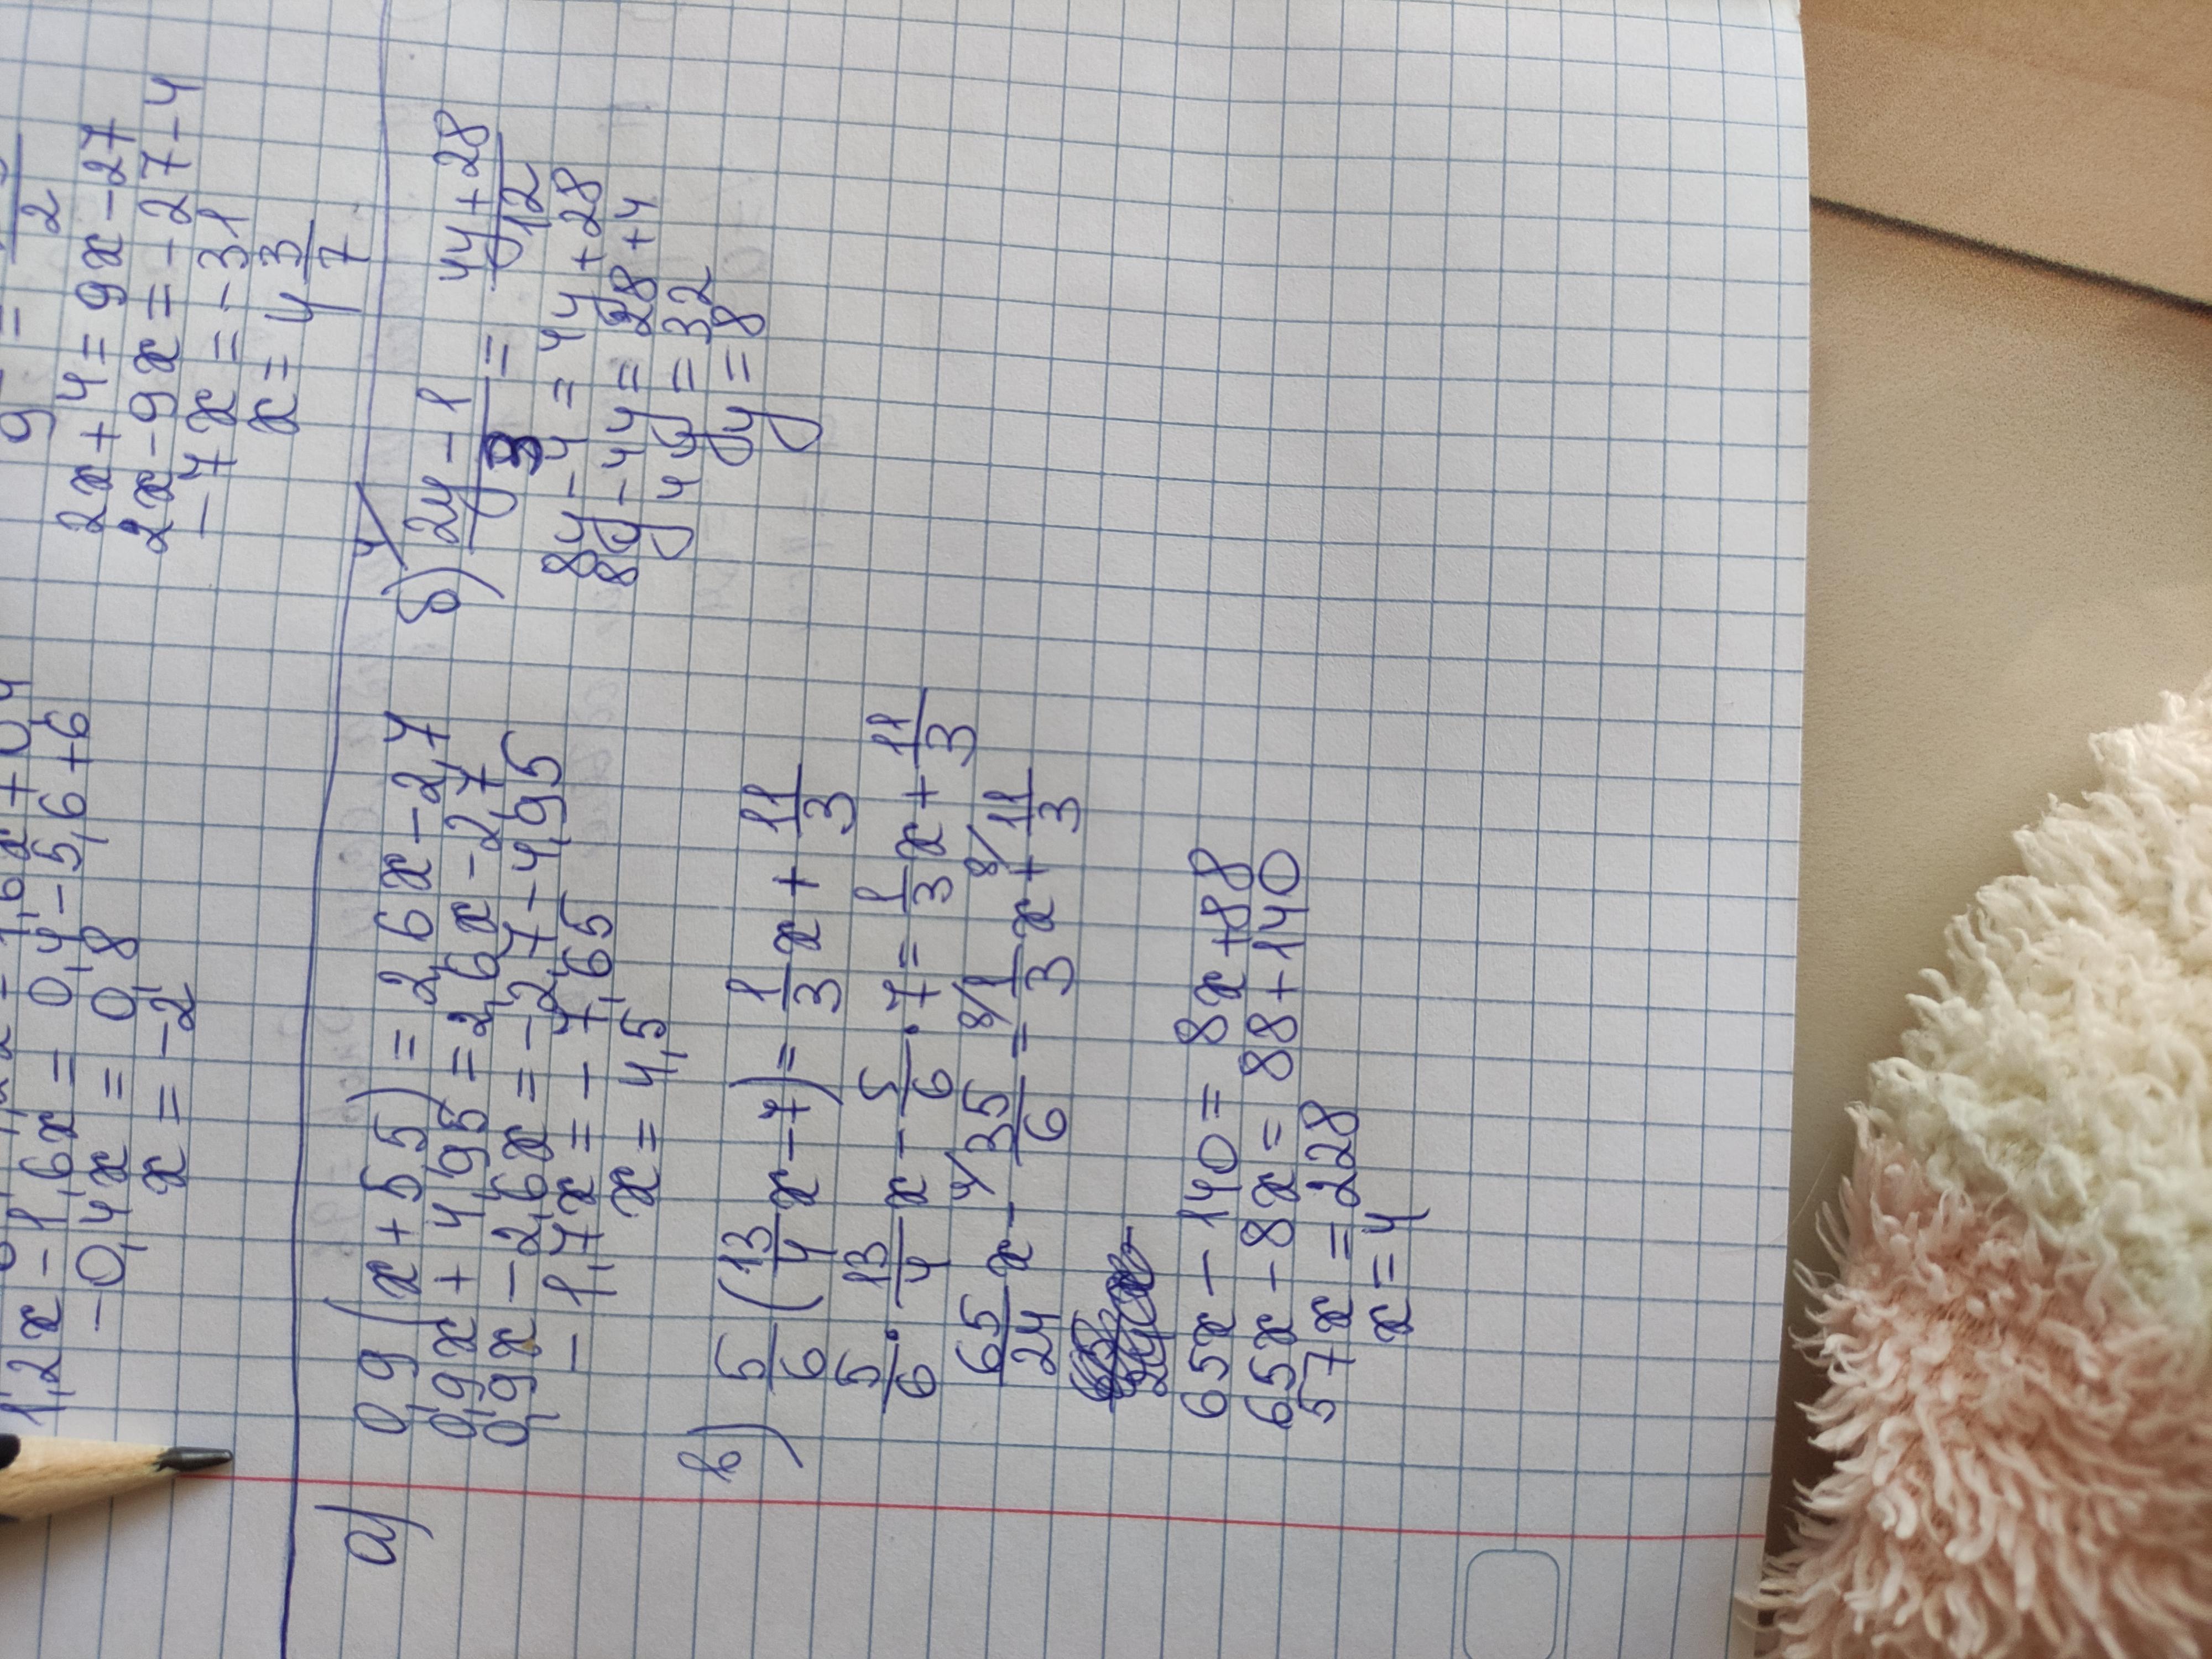 1,2x - 1,6x = 0,4 - 5,6 + 6
-0,4x = 0,8
x = -2
2x + 4 = 9x - 27
2x - 9x = -27 - 4
-7x = -31
x = 4 3/7
а) 0,9 (x + 5,5) = 2,6x - 2,7
0,9x + 4,95 = 2,6x - 2,7
0,9x - 2,6x = -2,7 - 4,95
-1,7x = -7,65
x = 4,5
б) 4/ (2y - 1)/3 = (4y + 28)/12
8y - 4 = 4y + 28
8y - 4y = 28 + 4
4y = 32
y = 8
в) 5/6 (13/4 x - 7) = 1/3 x + 11/3
5/6 · 13/4 x - 5/6 · 7 = 1/3 x + 11/3
65/24 x - 4/ 35/6 = 8/ 1/3 x + 8/ 11/3
65x - 140 = 8x + 88
65x - 8x = 88 + 140
57x = 228
x = 4